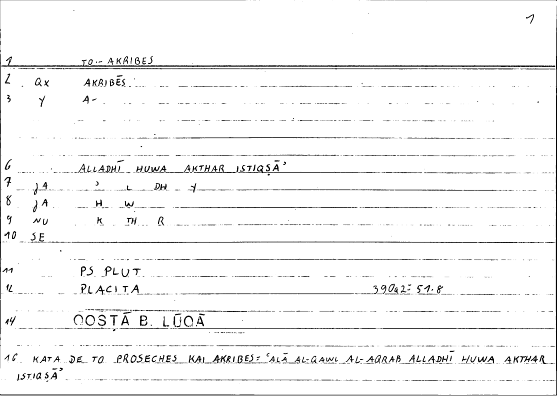 1
1 TO -- AKRIBES
2 QX AKRIBĒS
3 Y A-
6 ALLADHĪ HUWA AKTHAR ISTIQṢĀʾ
7 JA ʾ L DH Y
8 JA H W
9 NU K TH R
10 SE
11 PS PLUT
12 PLACITA 390a2 = 51.8
14 QOSṬĀ B. LŪQĀ
16 KATA DE TO PROSECHES KAI AKRIBES = ʿALĀ AL-QAWL AL-AQRAB ALLADHĪ HUWA AKTHAR
ISTIQṢĀʾ